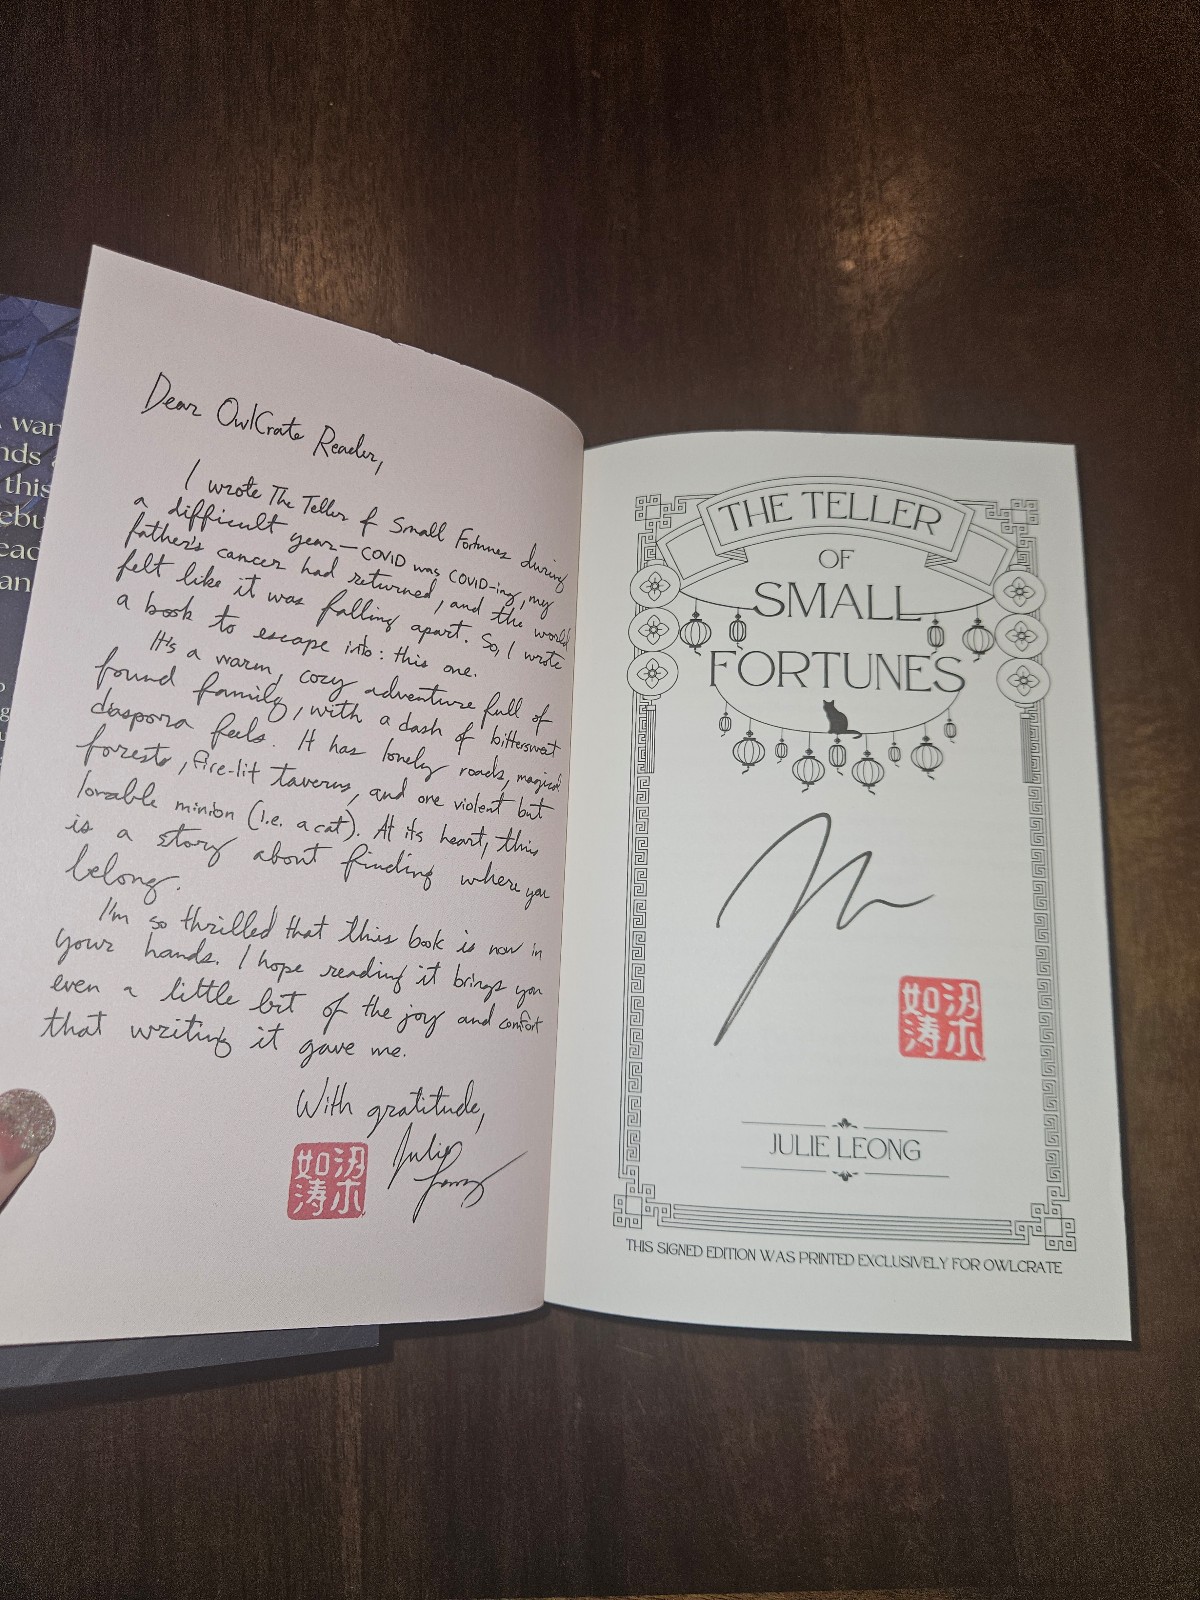 Dear OwlCrate Reader,
I wrote The Teller of Small Fortunes during
a difficult year—COVID was COVID-ing, my
father's cancer had returned, and the world
felt like it was falling apart. So, I wrote
a book to escape into: this one.
It's a warm, cozy adventure full of
found family, with a dash of bittersweet
diaspora feels. It has lonely roads, magical
forests, fire-lit taverns, and one violent but
lovable minion (i.e. a cat). At its heart, this
is a story about finding where you
belong.
I'm so thrilled that this book is now in
your hands. I hope reading it brings you
even a little bit of the joy and comfort
that writing it gave me.
With gratitude,
Julie Leong
如涛
THE TELLER
OF
SMALL
FORTUNES
如涛
JULIE LEONG
THIS SIGNED EDITION WAS PRINTED EXCLUSIVELY FOR OWLCRATE